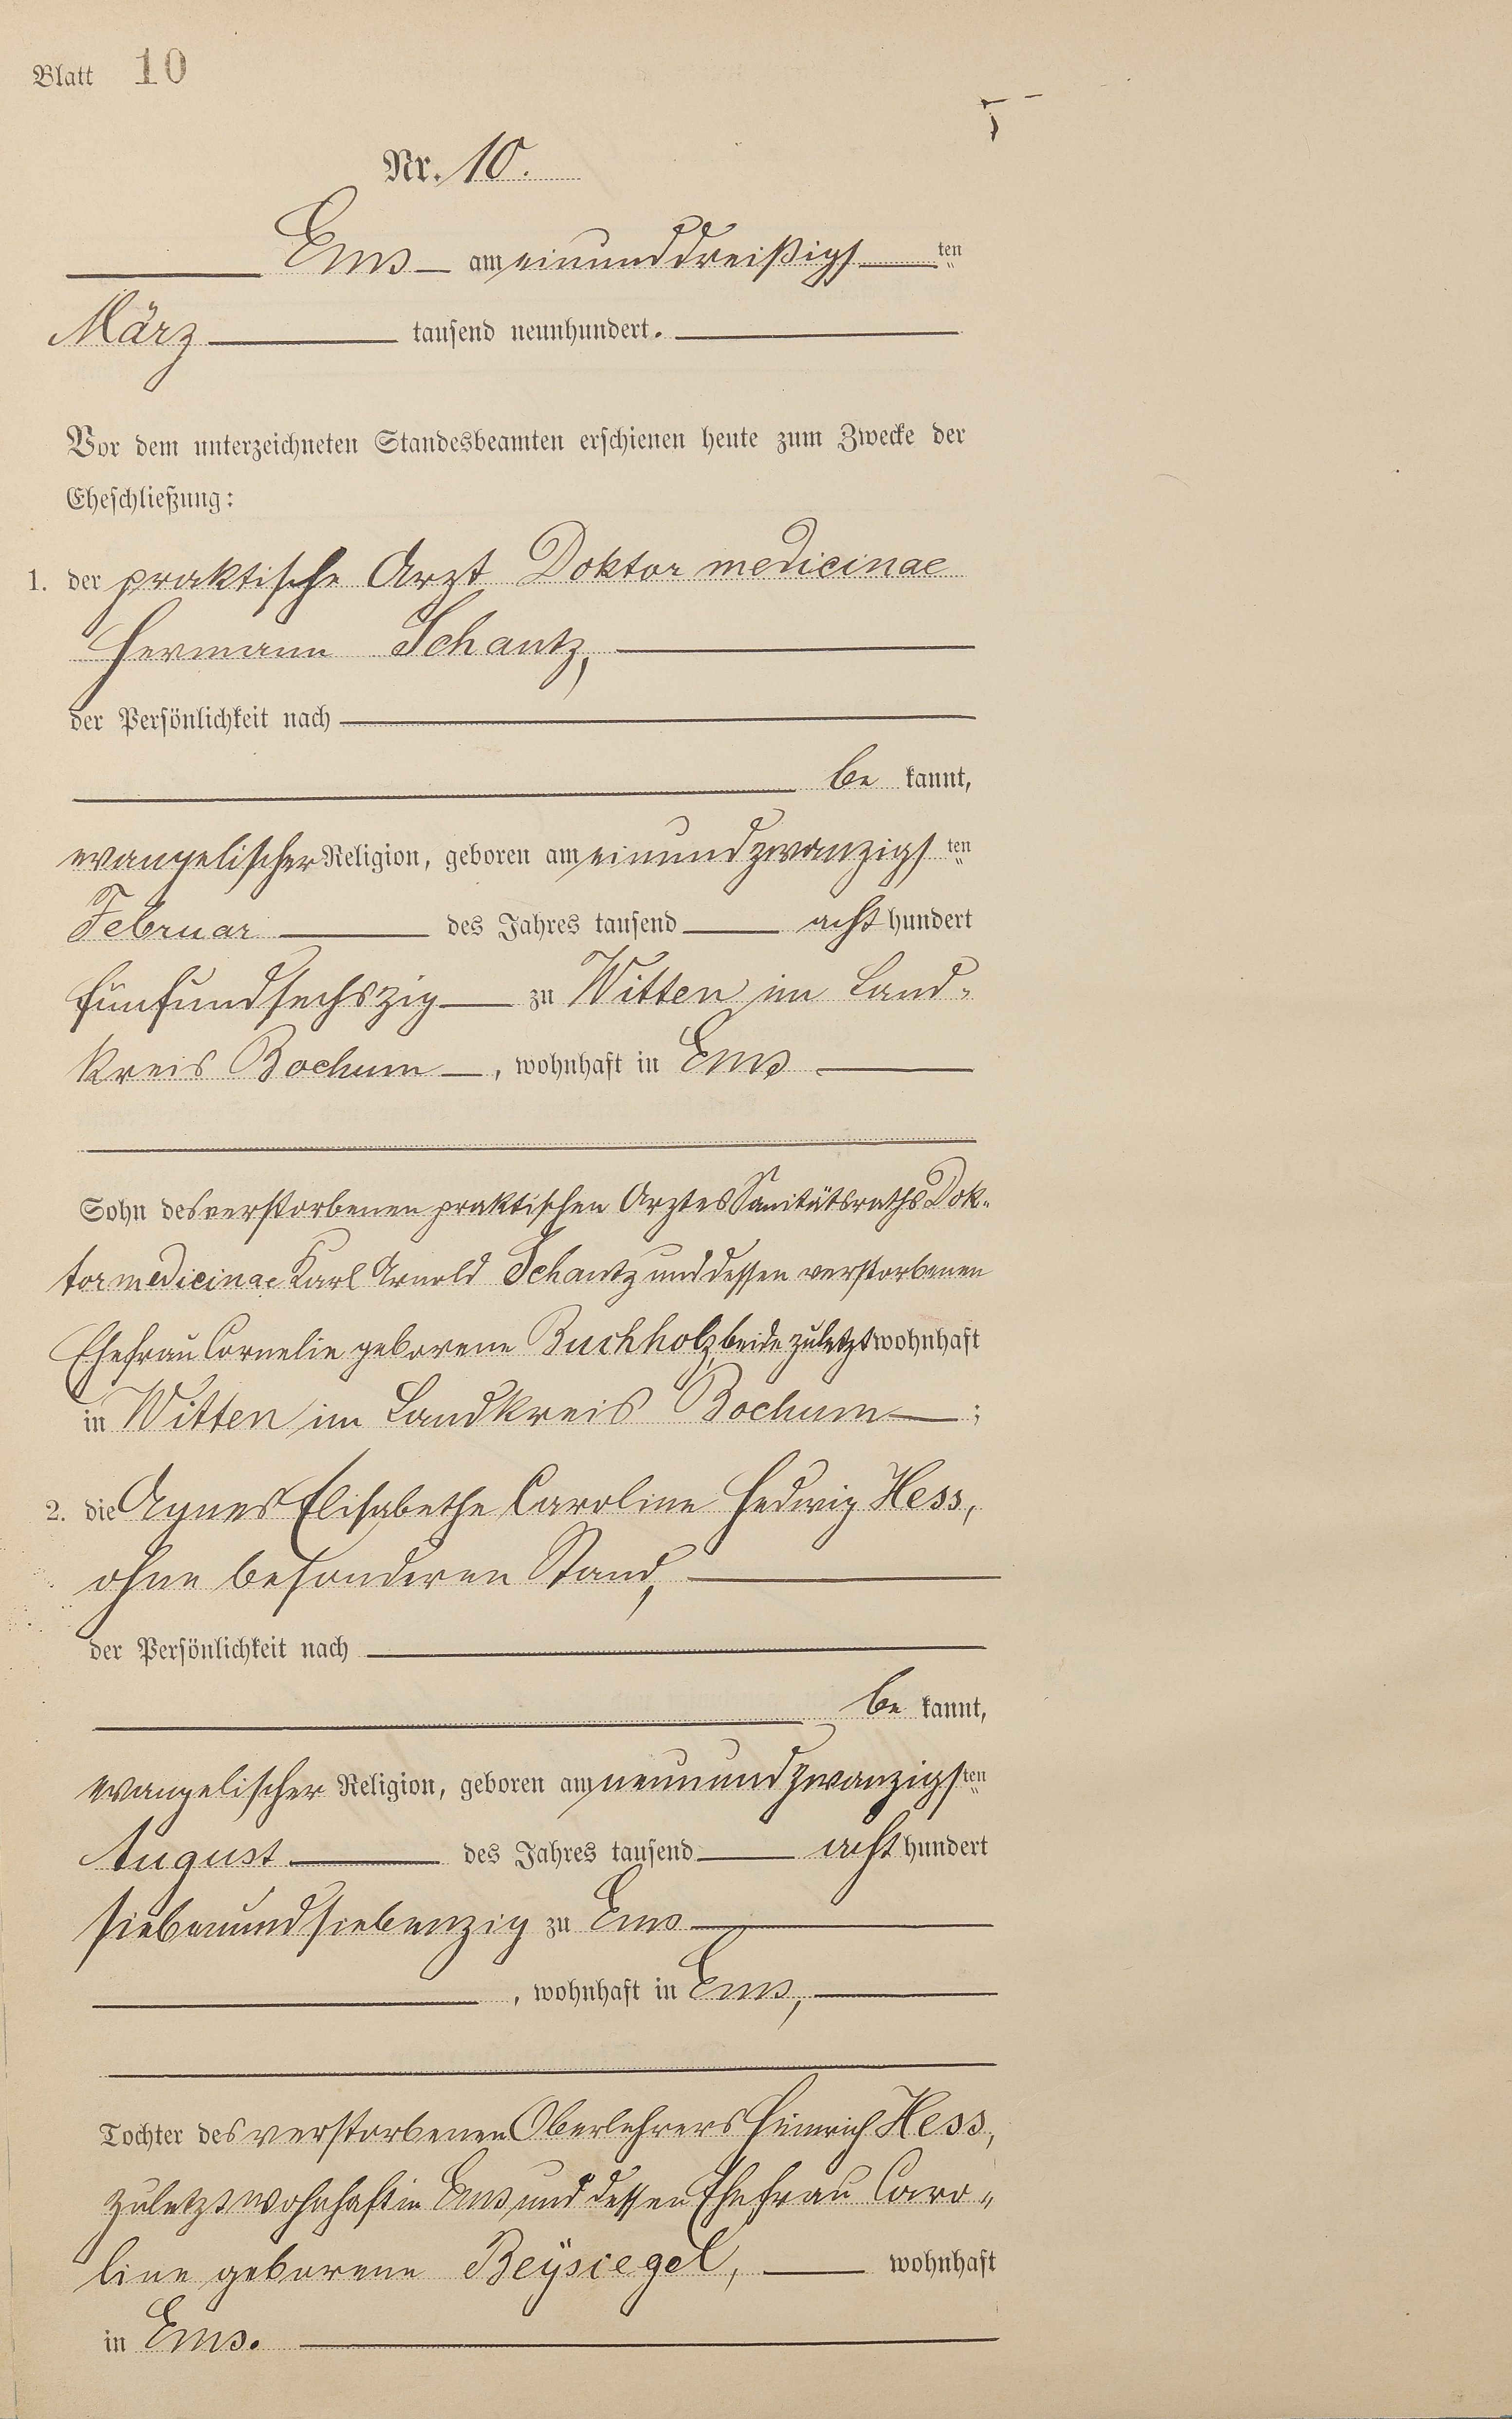 Blatt 10
Nr. 10.
Ems am einunddreißigsten
März tausend neunhundert.
Vor dem unterzeichneten Standesbeamten erschienen heute zum Zwecke der
Eheschließung:
1. der praktische Arzt Doktor medicinae
Hermann Schantz,
der Persönlichkeit nach
be kannt,
evangelischer Religion, geboren am einundzwanzigsten
Februar des Jahres tausend acht hundert
fünfundsechszig zu Witten im Land-
kreis Bochum, wohnhaft in Ems
Sohn des verstorbenen praktischen Arztes Sanitätsraths Dok-
tor medicinae Karl Arnold Schantz und dessen verstorbenen
Ehefrau Cornelie geborene Buchholz, beide zuletzt wohnhaft
in Witten im Landkreis Bochum;
2. die Agnes Elisabethe Caroline Hedwig Hess,
ohne besonderen Stand,
der Persönlichkeit nach
be kannt,
evangelischer Religion, geboren am neunundzwanzigsten
August des Jahres tausend acht hundert
siebenundsiebenzig zu Ems
, wohnhaft in Ems,
Tochter des verstorbenen Oberlehrers Heinrich Hess,
zuletzt wohnhaft in Ems und dessen Ehefrau Caro-
line geborene Beÿsiegel, wohnhaft
in Ems.